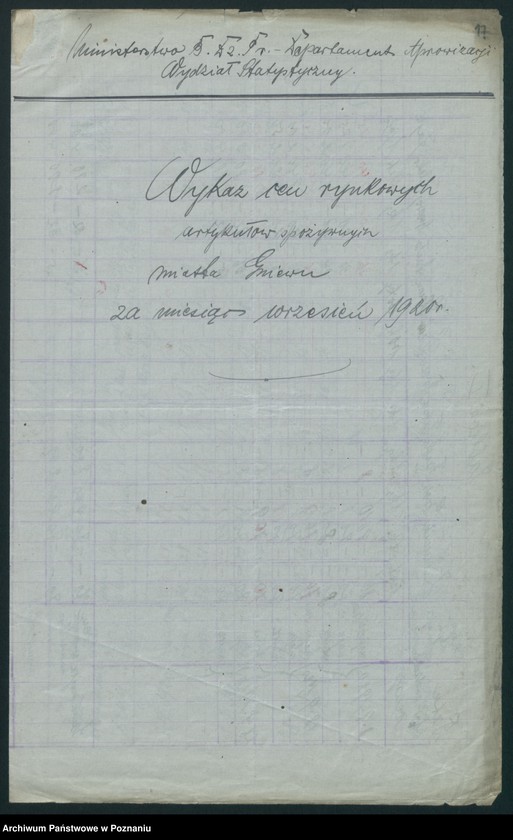 17
Ministerstwo B. Dz. Pr. - Departament Aprowizacji
Wydział Statystyczny.
Wykaz cen rynkowych
artykułów spożywczych
miasta Gniewu
za miesiąc wrzesień 1920 r.
Archiwum Państwowe w Poznaniu